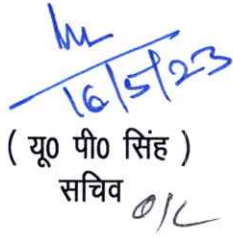 16/5/23
( यू0 पी0 सिंह )
सचिव
O/C